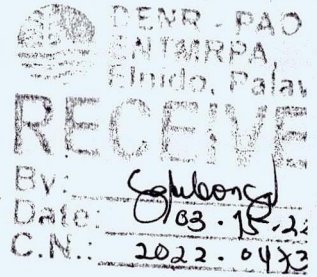 DENR - PAO
ENTMRPA,
Elnido, Palaw
RECEIVE
By:
Date: 03.15.22
C.N.: 2022.04